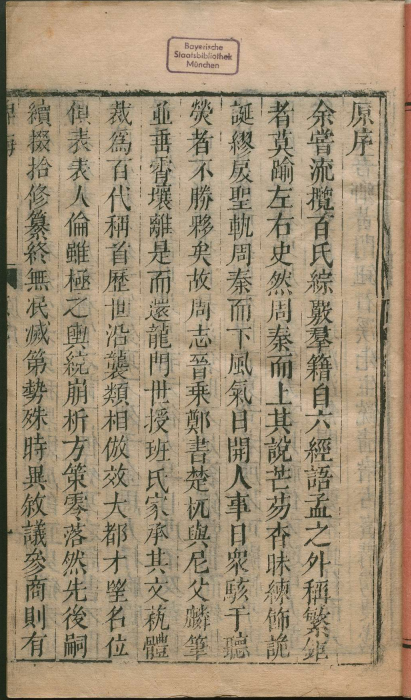 Bayerische
Staatsbibliothek
München
原序
余嘗流攬百氏綜覈羣籍自六經語孟之外稱繁鉅
者莫踰左右史然周秦而上其說芒芴杳昧練飾詭
誕繆戾聖軌周秦而下風氣日開人事日衆駭于聽
熒者不勝夥矣故周志晉乗鄭書楚杌與尼父麟筆
並垂霄壤離是而還龍門世授班氏家承其文蓺體
裁爲百代稱首歷世沿襲類相倣效大都才望名位
傾表表人倫雖極之輿統崩析方策零落然先後嗣
續掇拾修纂終無泯滅第勢殊時異敘議參商則有